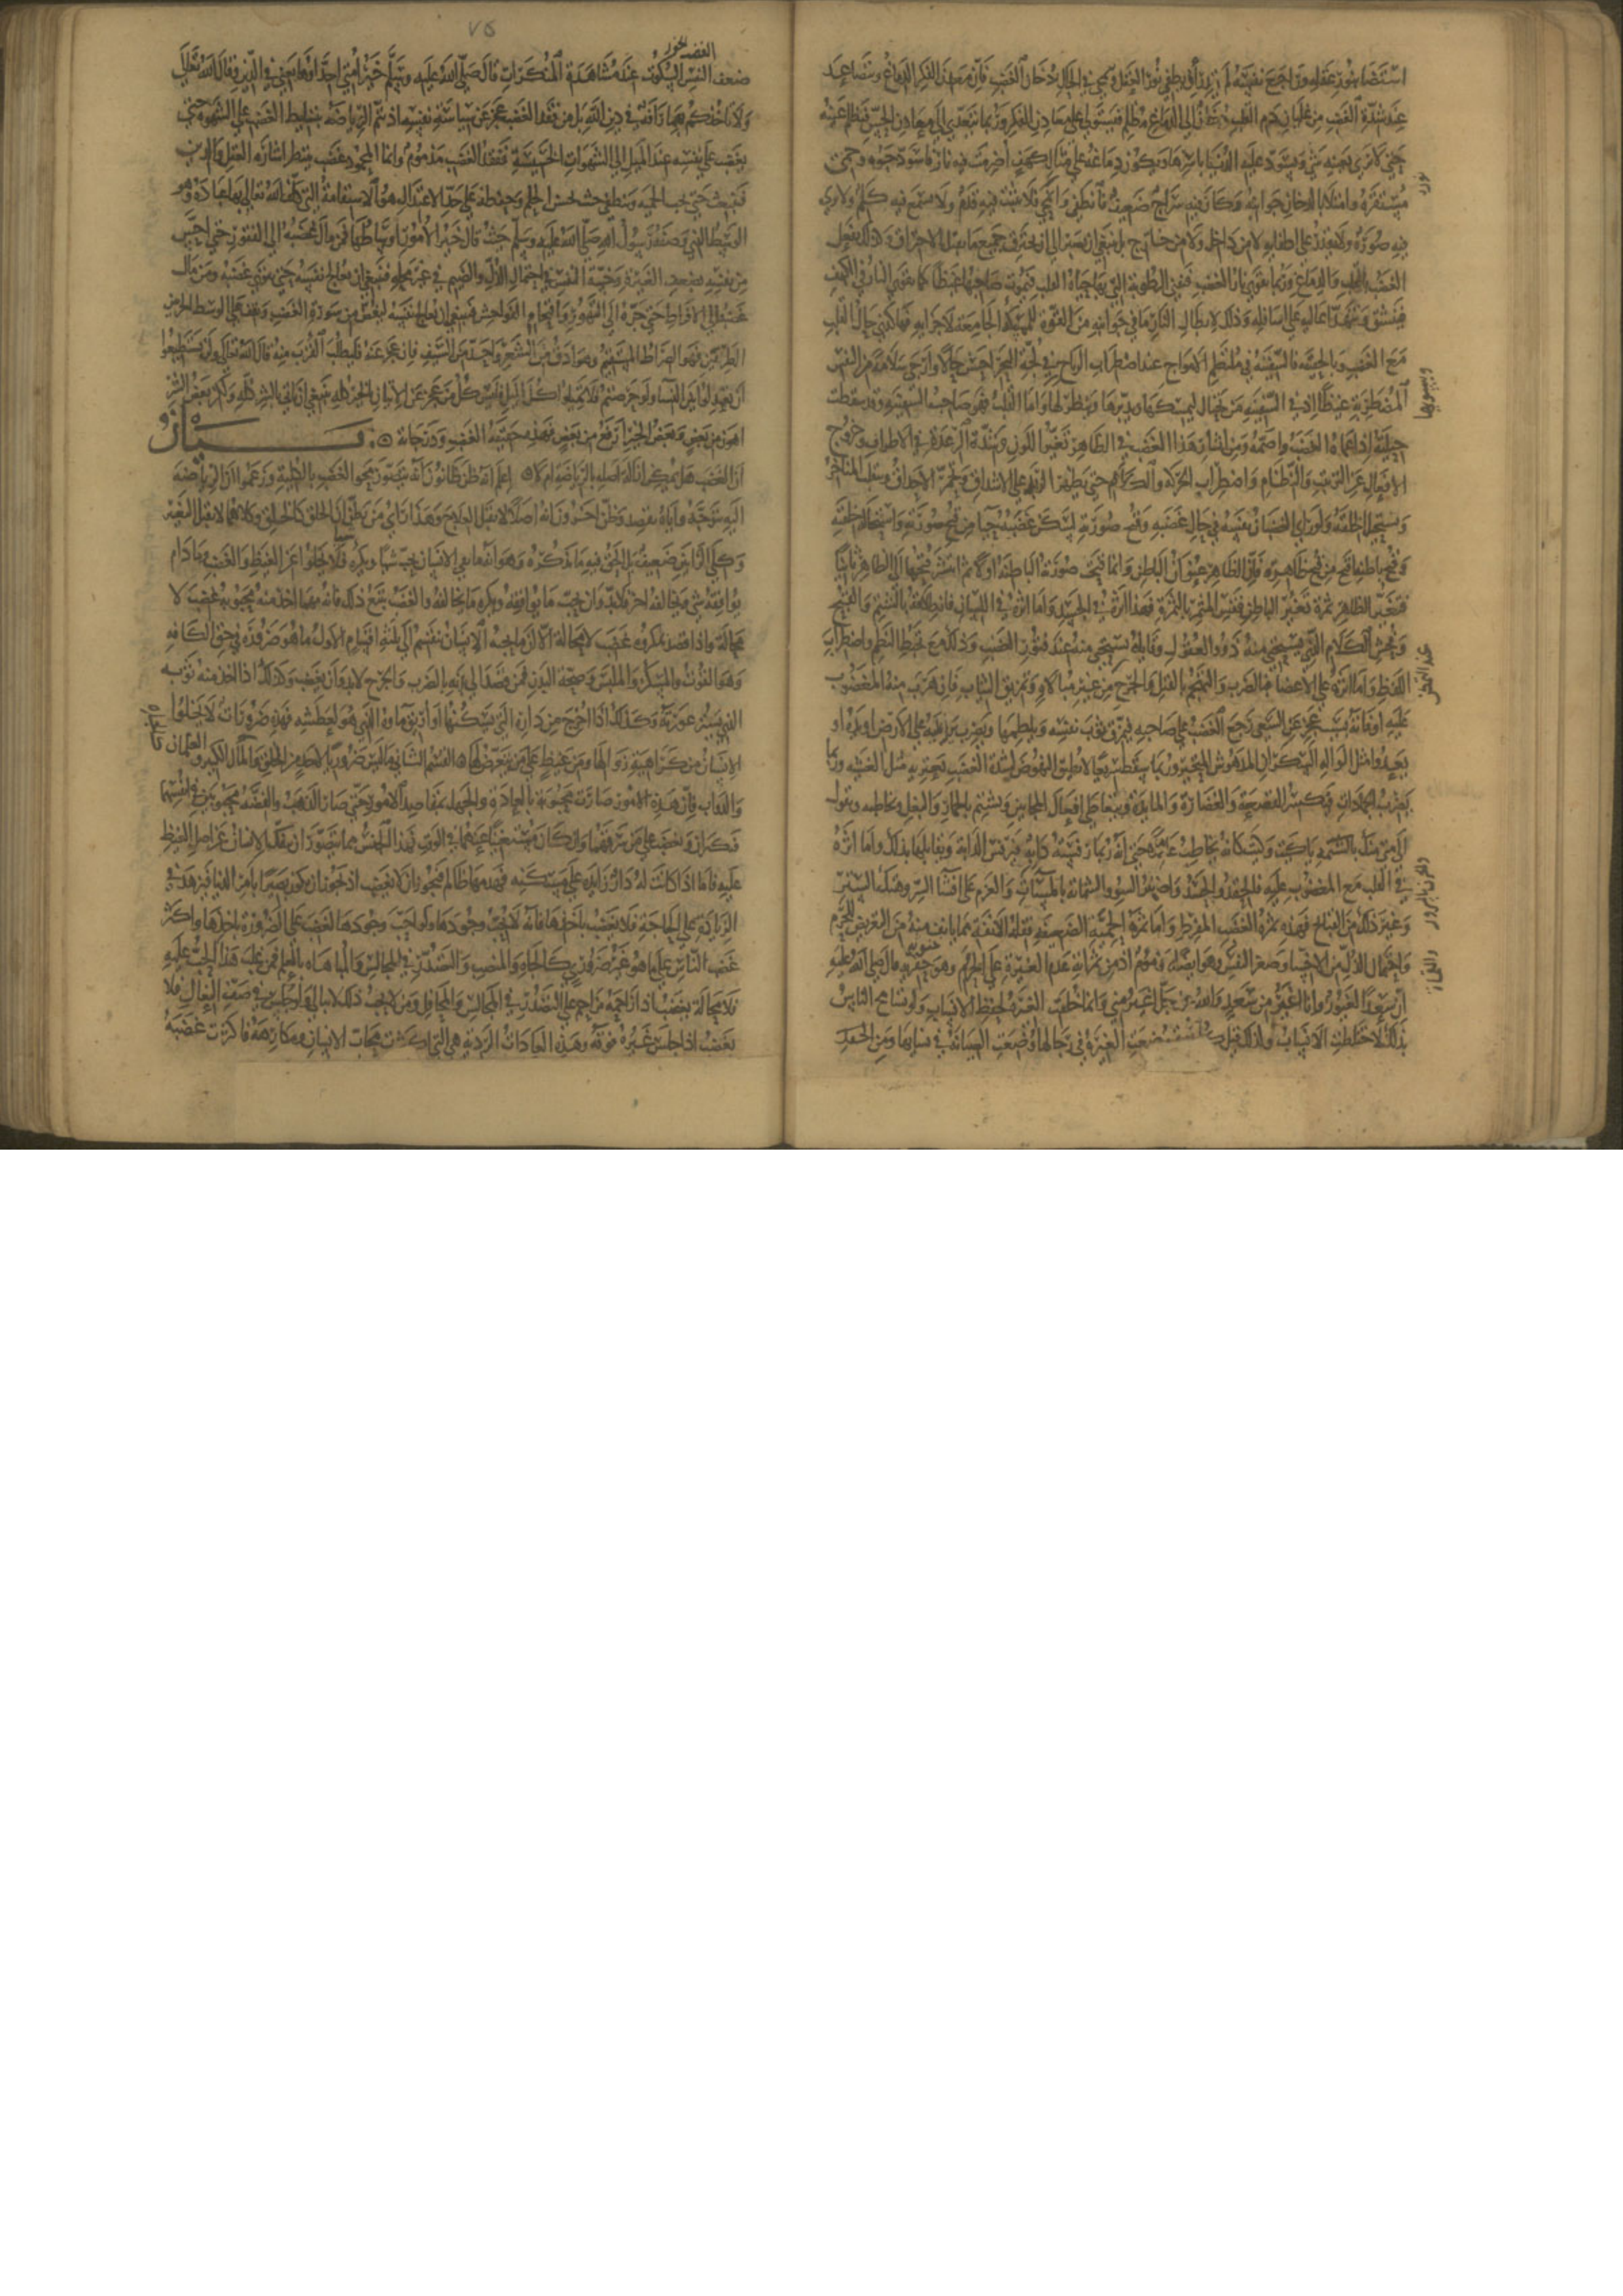 استضا بنور عقله وراجع نفسه لم يزل ان ينطفي نور العقل ويمحي في الحال بدخان الغضب فان معدن الفكر الدماغ ويتصاعد
عند شدة الغضب من غليان دم القلب دخان الي الدماغ مظلم فيستولي علي معادن الفكر وربما يتعدي الي معادن الحس فتظلم عينه
حتي لا يري بعينه شي ويسود عليه الدنيا باسرها ويكون دماغه علي مثال كهف اضرمت فيه نار فاسود جوه وحمي
مستقره وامتلا بالدخان جوانبه وكان فيه سراج ضعيف فانطفي وانمحي فلا يثبت فيه قدم ولا يسمع فيه كلام ولا يري
فيه صورة ولا يقدر علي اطفايه لا من داخل ولا من خارج بل ينبغي ان يصبر الي ان يحترق جميع ما يقبل الاحتراق وكذلك يفعل
الغضب بالقلب والدماغ وربما تقوي نار الغضب فتفني الرطوبة التي بها حياة القلب فيموت صاحبها غيظا كما تقوي النار في الكهف
فينشق وتنهد اعاليه علي اسافله وذلك لابطال النار ما في جوانبه من القوة الممسكة الجامعة لاجزايه فهكذي حال القلب
مع الغضب وبالحقيقة فالسفينة في ملتطم الامواج عند اضطراب الرياح في لجة البحر احسن حالا وارجي سلامة من النفس
المضطربة غيظا اذ في السفينة من يحتال لتسكينها وتدبيرها وينظر لها واما القلب فهو صاحب السفينة وقد سقطت
حيلته اذ اعماه الغضب واصمه ومن اثار هذا الغضب في الظاهر تغير اللون وشدة الرعدة في الاطراف وخروج
الافعال عن الترتيب والنظام واضطراب الحركة والكلام حتي يظهر الزبد علي الاشداق وتحمر الاحداق وتنقلب المناخر
وتستحيل الخلقة ولو راي الغضبان نفسه في حال غضبه وقبح صورته لسكن غضبه حيا من قبح صورته واستحالة خلقته
وقبح باطنه اقبح من قبح ظاهره فان الظاهر عنوان الباطن وانما قبحت صورة الباطن اولا ثم انتشر قبحها الي الظاهر ثانيا
فتغير الظاهر ثمرة تغير الباطن فقس المثمر بالثمرة فهذا اثره في الجسد واما اثره في اللسان فانطلاقه بالشتم والقبيح
وفحش الكلام الذي يستحيي منه ذوو العقول وقايله يستحيي منه عند فتور الغضب وذلك مع تخبط النظم واضطراب
اللفظ واما اثره علي الاعضا فالضرب والتهجم بالقتل والجرح من غير مبالاة وتمزيق الثياب فان هرب منه المغضوب
عليه او فاته بسبب عجز عن التشفي رجع الغضب علي صاحبه فيمزق ثوب نفسه ويلطمها ويضرب يده علي الارض او
يعدو مثل الواله السكران المدهوش المتحير وربما يسقط سريعا لا يطيق النهوض لشدة الغضب يعتريه مثل الغشية وربما
يضرب الجمادات فيكسر القصعة والغضارة والمايدة ويتعاطي افعال المجانين ويشتم الحمار والبغل ويخاطبه ويقول
الي متي منك يا كيت وكيت كانه يخاطب عاقلا حتي انه ربما رفسته دابة فيرفس الدابة ويقابلها بذلك واما اثره
في القلب مع المغضوب عليه فالحقد والحسد واضمار السوء والشماتة بالمسيآت والعزم علي افشا السر وهتك الستر
وغير ذلك من القبايح فهذه ثمرة الغضب المفرط واما ثمرة الحمية الضعيفة فقلة الانفة مما يانف منه من التعرض للحرم
واحتمال الذل من الاخسا وصغر النفس وهو ايضا مذموم اذ من ثمراته عدم الغيرة علي الحرم وهو قال صلي الله عليه
ان سعدا لغيور وانا اغير من سعد والله عز وجل اغير مني وانما خلقت الغيرة لحفظ الانساب ولو تسامح الناس
بذلك لاختلطت الانساب ولذلك قيل كل امة ضعفت الغيرة في رجالها وضعت الصيانة في نسايها ومن ضعف
عند الغضب
٧٥
الغضب الخور
ضعف النفس السكوت عند مشاهدة المنكرات قال صلي الله عليه وسلم خير امتي احداوها يعني في الدين وقال الله تعالي
ولا تاخذكم بهما رافة في دين الله بل من فقد الغضب عجز عن سياسة نفسه اذ تتم الرياضة بتسليط الغضب علي الشهوة حتي
يغضب علي نفسه عند الميل الي الشهوات الخسيسة ففقد الغضب مذموم وانما المحمود غضب ينتظر اشارة العقل والدين
فينبعث حيث تجب الحمية وينطفي حيث يحسن الحلم وحفظه علي حد الاعتدال هو الاستقامة التي كلف الله تعالي بها عباده وهو
الوسط الذي وصفه رسول الله صلي الله عليه وسلم حيث قال خير الامور اوساطها فمن مال غضبه الي الفتور حتي احس
من نفسه بضعف الغيرة وخسة النفس في احتمال الذل والضيم في غير محله فينبغي ان يعالج نفسه حتي يقوي غضبه ومن مال
غضبه الي الافراط حتي جره الي التهور واقتحام الفواحش فينبغي ان يعالج نفسه لينقص من سورة الغضب ويقف علي الوسط الحق بين
الطرفين فهو الصراط المستقيم وهو ادق من الشعر واحد من السيف فان عجز عنه فليطلب القرب منه قال الله تعالي ولن تستطيعوا
ان تعدلوا بين النسا ولو حرصتم فلا تميلوا كل الميل فليس كل من عجز عن الاتيان بالخير كله ينبغي ان ياتي بالشر كله ولكن بعض الشر
اهون من بعض وبعض الخير ارفع من بعض فهذه حقيقة الغضب ودرجاته ۞ بيان
ان الغضب هل يمكن ازالة اصله بالرياضة ام لا اعلم انه ظن ظانون انه يتصور محو الغضب بالكلية وزعموا ان الرياضة
اليه تتوجه واياه تقصد وظن اخرون انه اصلا لا يقبل العلاج وهذا راي من يظن ان الخلق كالخلق وكلاهما لا يقبل التغير
وكلي الرايين ضعيف بل الحق فيه ما نذكره وهو انه ما بقي الانسان يحب شيا ويكره فلا يخلوا عن الغيظ والغضب وما دام
يوافقه شي ويخالفه اخر فلا بد وان يحب ما يوافقه ويكره ما يخالفه والغضب يتبع ذلك فانه مهما اخذ منه محبوبه غضب لا
محالة واذا قصد بمكروه غضب لا محالة الا ان ما يحبه الانسان ينقسم الي ثلثة اقسام الاول ما هو ضرورة في حق الكافة
وهو القوت والمسكن والملبس وصحة البدن فمن قصد الي بدنه بالضرب والجرح لا بد وان يغضب وكذلك اذا اخذ منه ثوبه
الذي يستر عورته وكذلك اذا اخرج من داره التي يسكنها او اريق ماوه الذي هو لعطشه فهذه ضرورات لا يخلوا
الانسان من كراهية زوالها ومن غيظ علي من يتعرض لها القسم الثاني ما ليس ضروريا لاحد من الخلق والمال الكثير والغلمان
والدواب فان هذه الامور صارت محبوبة بالعادة والجهل بمقاصد الامور حتي صار الذهب والفضة محبوبين في انفسهما
فيكنزان ويغضب علي من يسرقهما وان كان مستغنيا عنهما في القوت فهذا الجنس مما يتصور ان ينفك الانسان عن اصل الغيظ
عليه فاما اذا كانت له دار زايدة علي مسكنه فهدمها ظالم فيجوز ان لا يغضب اذ يجوز ان يكون بصيرا بامر الدنيا فيزهد في
الزيادة علي الحاجة فلا يغضب باخذها فانه لا يحب وجودها ولو احب وجودها لغضب علي الضرورة باخذها واكثر
غضب الناس علي ما هو غير ضروري كالجاه والمنصب والتصدر في المجالس والمباهاة بالعلم فمن غلب هذا الحب عليه
فلا محالة يغضب اذا زاحمه مزاحم علي التصدر في المجالس والمحافل ومن لا يحب ذلك لا يبالي ولو جلس في صف النعال فلا
يغضب اذا جلس غيره فوقه وهذه العادات الردية هي التي اكثرت محاب الانسان ومكارهه فاكثرت غضبه